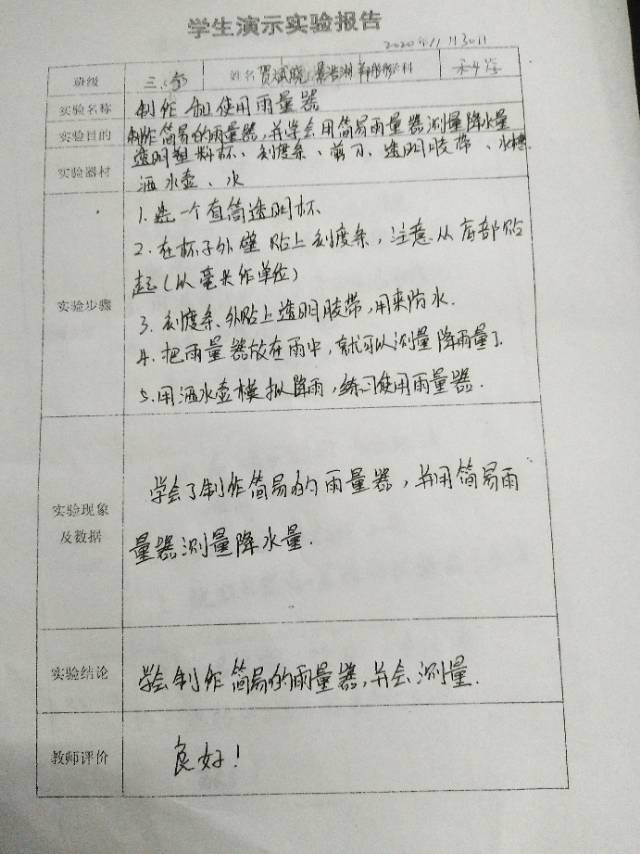 学生演示实验报告
2020年11月30日
班级 三. 姓名 贾斌晓 科
实验名称 制作和使用雨量器
实验目的 制作简易的雨量器,并学会用简易雨量器测量降水量
实验器材 透明塑料杯、刻度条、剪刀、透明胶带、水槽
洒水壶、水
实验步骤
1.选一个直筒透明杯
2.在杯子外壁贴上刻度条,注意从底部贴
起(以毫米作单位)
3.刻度条外贴上透明胶带,用来防水.
4.把雨量器放在雨中,就可以测量降雨量了.
5.用洒水壶模拟降雨,练习使用雨量器.
实验现象
及数据
学会了制作简易的雨量器,并用简易雨
量器测量降水量.
实验结论 学会制作简易的雨量器,并会测量.
教师评价 良好!